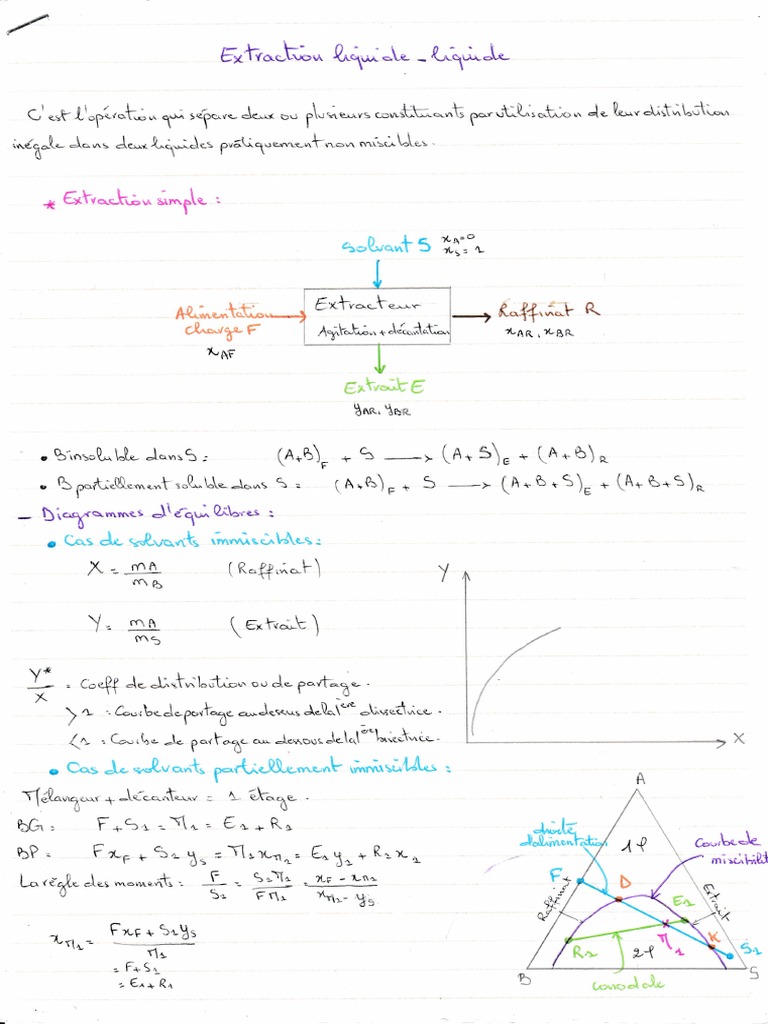 Extraction liquide - liquide
C'est l'opération qui sépare deux ou plusieurs constituants par utilisation de leur distribution
inégale dans deux liquides pratiquement non miscibles.
* Extraction simple :
Solvant S x_A=0
x_S = 1
Alimentation
charge F
x_AF
Extracteur
Agitation + décantation
Raffinat R
x_AR, x_BR
Extrait E
y_AR, y_BR
• B insoluble dans S : (A+B)_F + S → (A+S)_E + (A+B)_R
• B partiellement soluble dans S : (A+B)_F + S → (A+B+S)_E + (A+B+S)_R
- Diagrammes d'équilibres :
• Cas de solvants immiscibles :
X = m_A / m_B (Raffinat)
Y = m_A / m_S (Extrait)
Y
X
Y*/X = Coeff de distribution ou de partage.
>1 : Courbe de partage au dessus de la 1ère bissectrice.
<1 : Courbe de partage au dessous de la 1ère bissectrice.
• Cas de solvants partiellement immiscibles :
Mélangeur + décanteur = 1 étage.
BG : F + S1 = M1 = E1 + R1
BP : F x_F + S1 y_S = M1 x_M1 = E1 y1 + R1 x1
La règle des moments : F/S1 = S1M1/FM1 = x_F - x_M1 / x_M1 - y_S
x_M1 = F x_F + S1 y_S / M1
= F + S1
= E1 + R1
A
droite
d'alimentation
1φ
Courbe de
miscibilit
F
D
E1
Raffinat
Extrait
M1
K
S1
R1
2φ
B
S
conodale